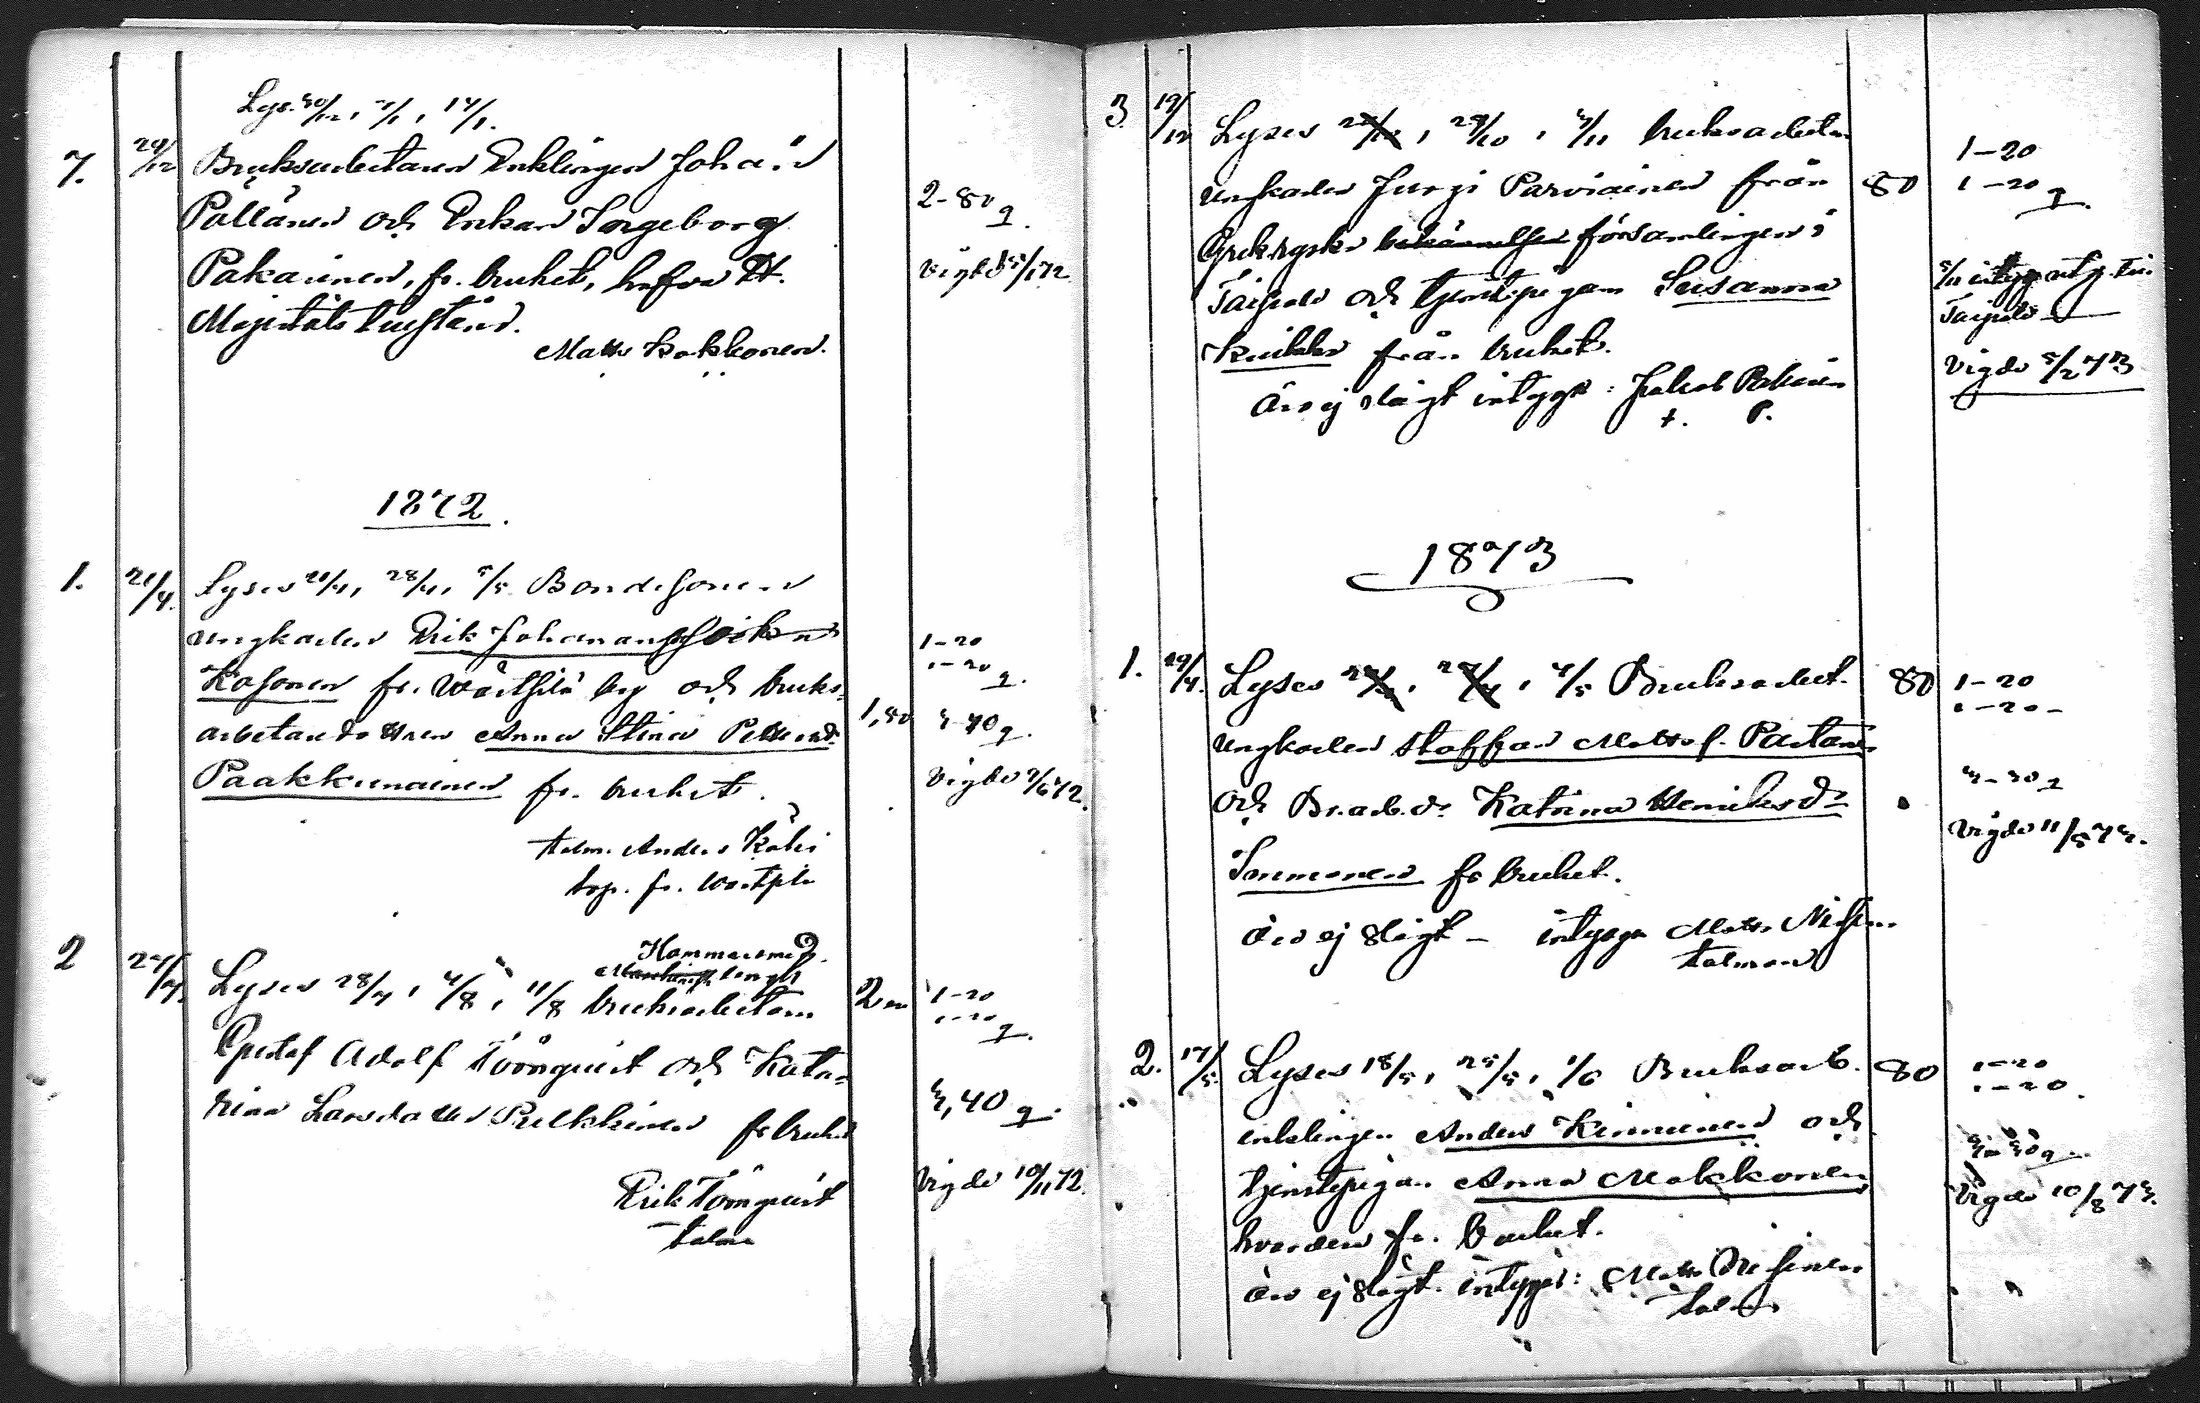 Lys. 30/12, 7/1, 14/1.
7. 29/12 Bruksarbetaren Enklingen Johan
Pallänen och Enkan Ingeborg
Pakarinen, fr. bruket, hafva H.
Majestäts tillstånd.
Matts Kokkonen.
2-80 q.
Vigde /1 72
1872.
1. 21/4. Lyses 21/4, 28/4, 5/5 Bondesonen
ungkarlen Erik Johansson
Kosonen fr. Wärtsilä by och bruks-
arbetaredottren Anna Stina Pettersdr
Paakkunainen fr. bruket.
talm. Anders
fr. Wärtsilä
1,80
1-20
1-20 q.
3-40 q.
Vigde /6 72.
2 27/7. Lyses 28/7, 4/8, 11/8 bruksarbetaren
Hammarsmed
Gustaf Adolf Törnquist och Kata-
rina Larsdotter Pulkkinen fr bruket
Erik Törnquist
talm
2
1-20
1-20 q.
3,40 q.
Vigde 10/11 72.
3 19/10 Lyses , 29/10, 3/11 bruksarbetar
ungkarlen Jurji Parviainen från
Grekryska bekännelsen församlingen i
Taipale och tjenstepigan Susanna
från bruket.
Äro ej slägt intygar: Jakob Pakarin
+. P.
80
1-20
1-20 q.
5/11 intyg utg. till
Taipale
Vigde 5/2 73
1873
1. 19/4. Lyses , , 4/5 Bruksarbet.
ungkarlen Staffan Matts s. Partanen
och Br.arb.dr Katrina Henriksdr
Immonen fr bruket.
Äro ej slägt - intygar Matts
talman
80
1-20
1-20-
3-30 q
Vigde 11/5 73.
2. 17/5. Lyses 18/5, 25/5, 1/6 Bruksarb.
enklingen Anders Kinnunen och
tjenstepigan Anna Makkonen
fr. bruket.
Äro ej slägt. intygar: Matts
talm
80
1-20
1-20.
Vigde 10/8 73.